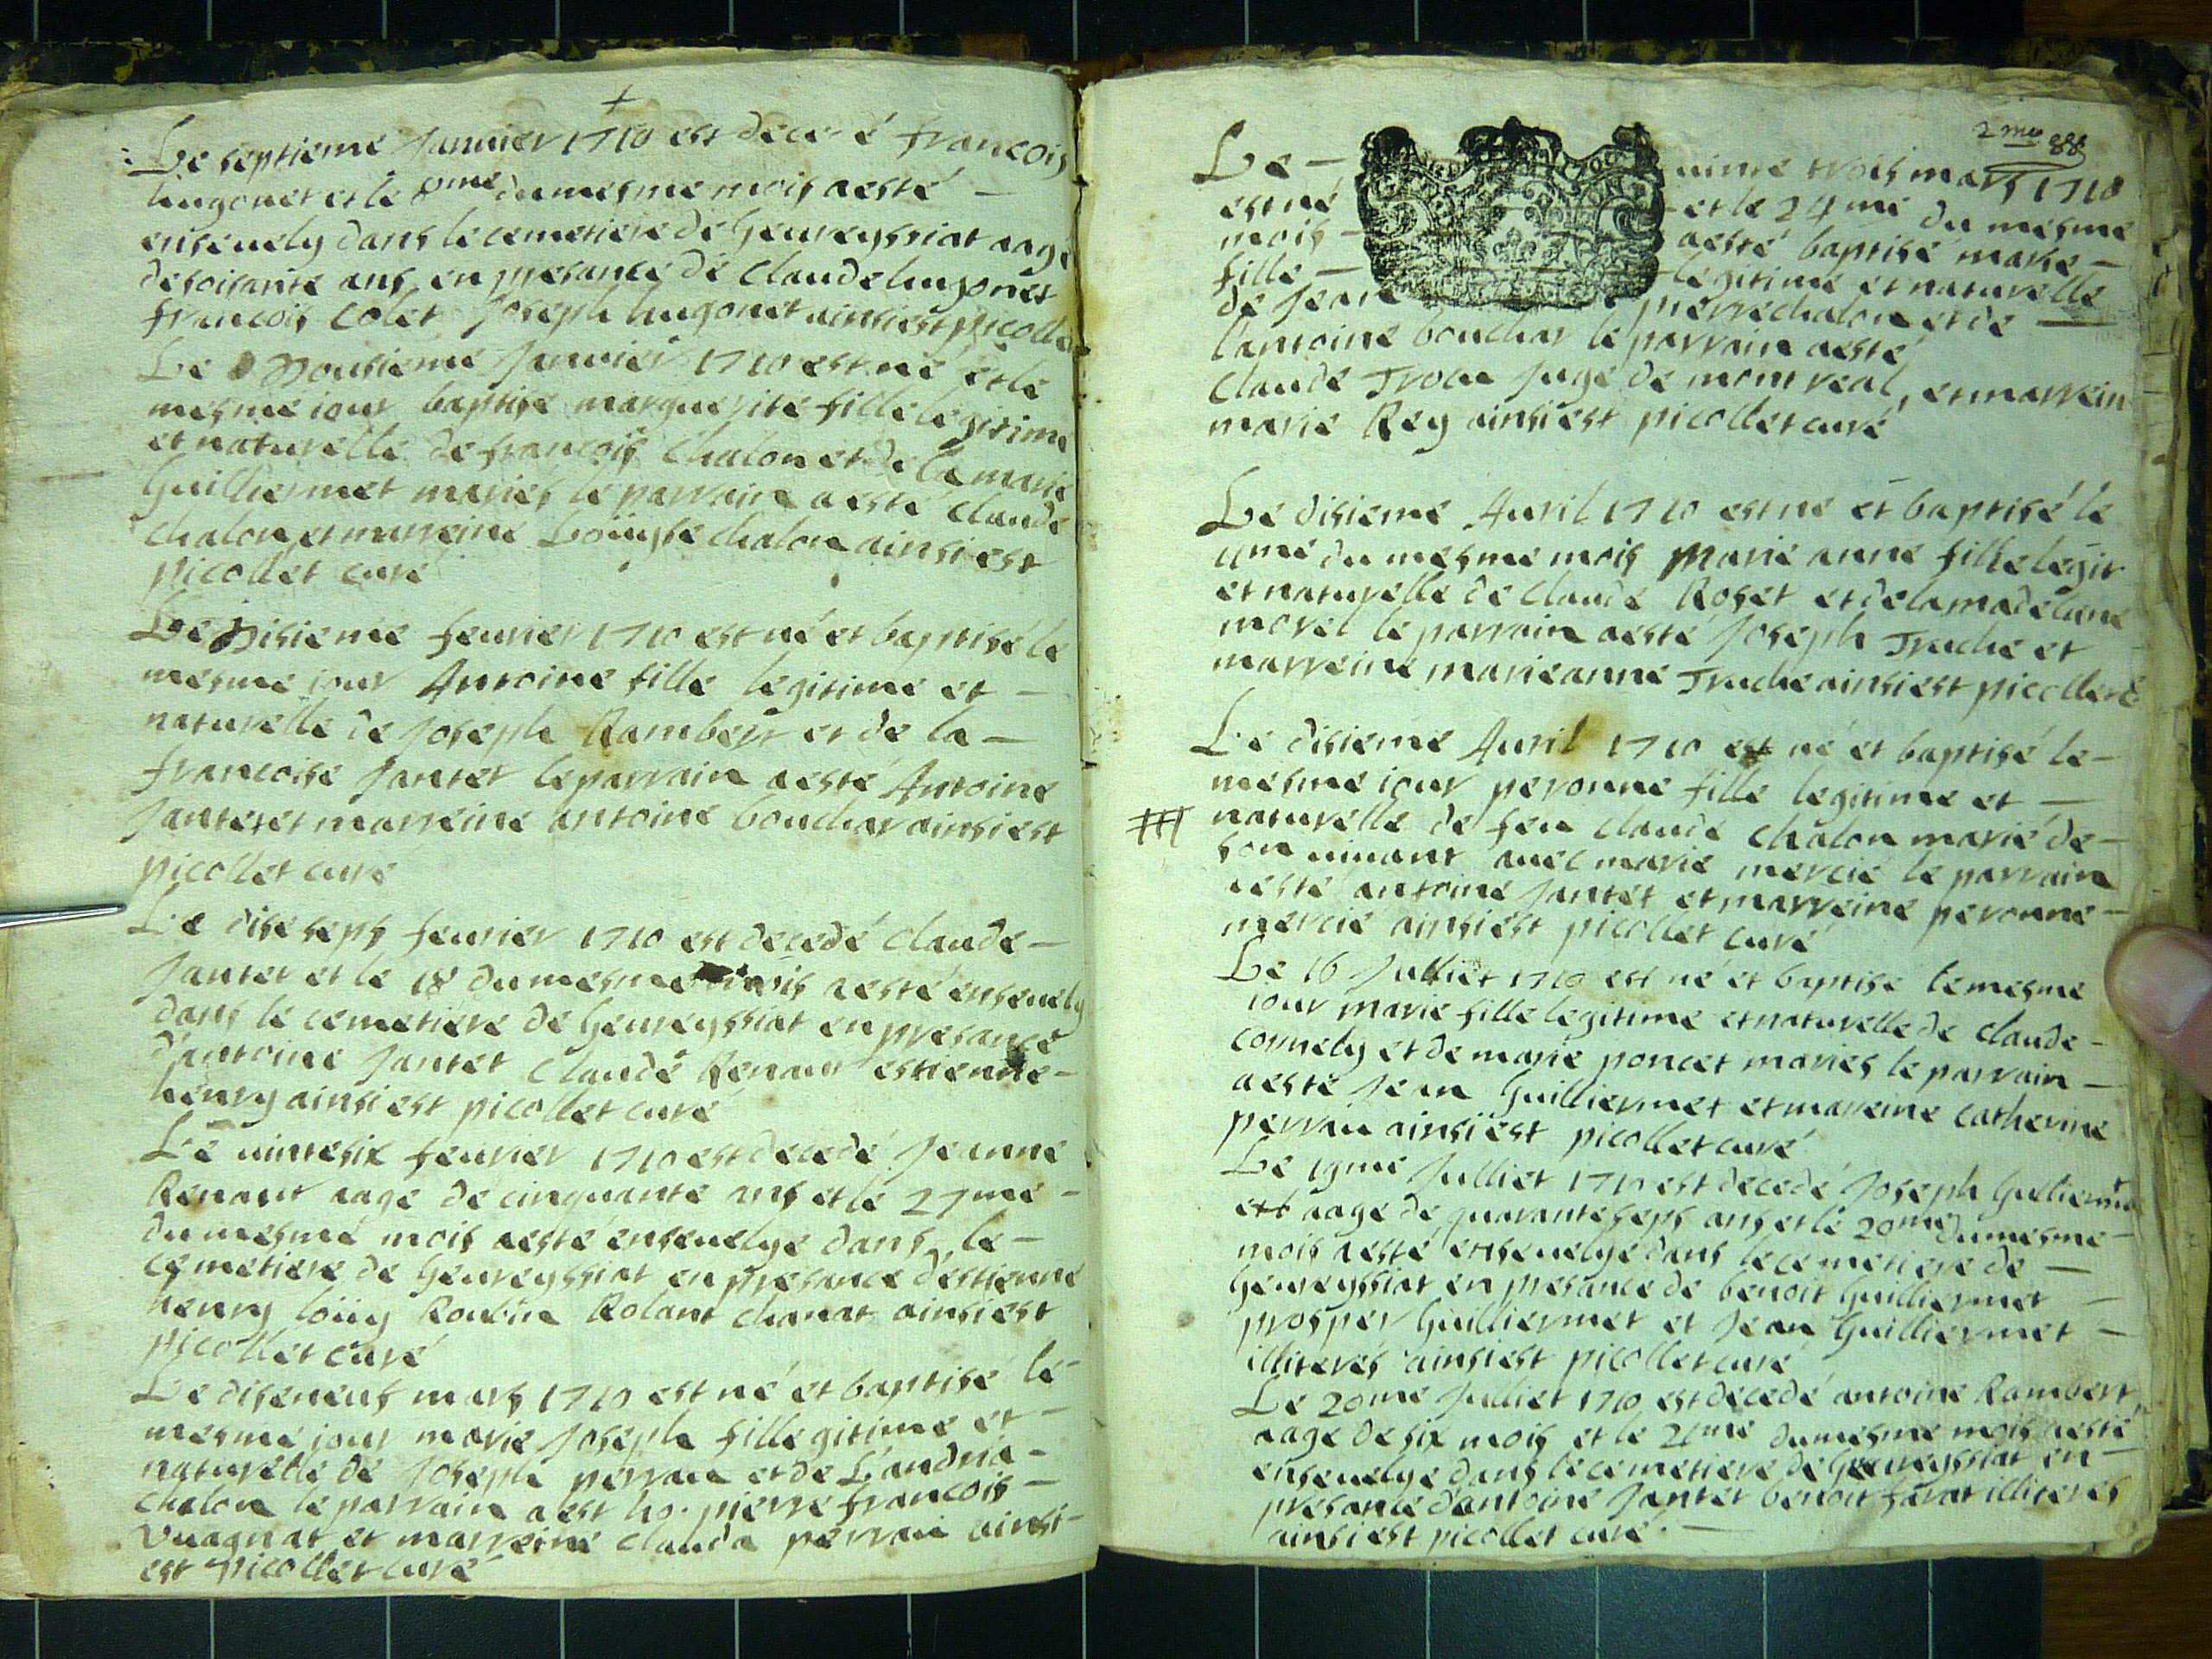 +
Le septieme Januier 1710 est decedé francois
hugonet et le 8me du mesme mois aesté –
enseuely dans le cemetiere de Geureyssiat aage
de soisante ans en presance de Claude hugonet
francois Colet Joseph hugonet ainsi est picollet
Le Dousieme Januier 1710 est né et le
mesme iour baptise marguerite fille legitime
et naturelle de francois Chalon et de la marie
Guilliermet maries le parrain a esté claude
chalon et marreine Loüyse chalon ainsi est
picollet curé
Le Disieme feurier 1710 est né et baptisé le
mesme iour Antoine fille legitime et –
naturelle de Joseph Rambert et de la –
francoise Jantet le parrain aesté Antoine
Jantet et marreine antoine bouchar ainsi est
picollet curé
Le dise seps feurier 1710 est decedé claude –
Jantet et le 18 du mesme mois aesté enseuely
dans le cemetiere de Geureyssiat en presance
d'antoine Jantet Claude Renaut estienne –
henry ainsi est picollet curé
Le uintesix feurier 1710 est decedé Jeanne
Renaut aage de cinquante ans et le 27me –
du mesme mois aesté enseuelye dans le –
cemetiere de Geureyssiat en presance d'estienne
henry loüy Roubin Rolant chanat ainsi est
picollet curé
Le diseneus mars 1710 est né et baptisé le
mesme iour marie Joseph fille gitime et –
naturelle de Joseph perrau et de L'andria –
chalon le parrain a est ho. pierre francois –
Vuagnat et marreine clauda perrau ainsi –
est picollet curé
2me 88
Le – uinte trois mars 1710
est né – et le 24me du mesme
mois – aesté baptisé marie –
fille – legitime et naturelle
de Jean pierre chalon et de –
l'antoine bouchar le parrain aesté
Claude Trocu Juge de montreal, et marrein
marie Rey ainsi est picollet curé
Le disieme Auril 1710 est né et baptisé le
11me du mesme mois Marie anne fille legit
et naturelle de Claude Roset et de la madelaine
morel le parrain aesté Joseph Truche et
marreine marie anne Truche ainsi est picollet c
Le disieme Auril 1710 est né et baptisé le –
mesme iour peronne fille legitime et –
naturelle de feu Claude Chalon marié de –
son uiuant auec marie mercie le parrain
aesté antoine Jantet et marreine peronne –
mercie ainsi est picollet curé
Le 16 Julliet 1710 est né et baptisé le mesme
iour marie fille legitime et naturelle de claude –
cornely et de marie poncet maries le parrain –
aesté Jean Guilliermet et marreine catherine
perrau ainsi est picollet curé
Le 19me Julliet 1710 est decedé Joseph Gulierm
et aage de quarante seps ans et le 20me du mesme –
mois aesté enseuelye dans le cemetiere de –
Geureyssiat en presance de benoit Guilliermet –
prosper Guilliermet et Jean Guilliermet –
illiteres ainsi est picollet curé
Le 20me Julliet 1710 est decedé antoine Rambert
aage de six mois et le 21me du mesme mois aesté
enseuelye dans le cemetiere de Geureyssiat en –
presance d'antoine Jantet benoit farat illiteres
ainsi est picollet curé. –